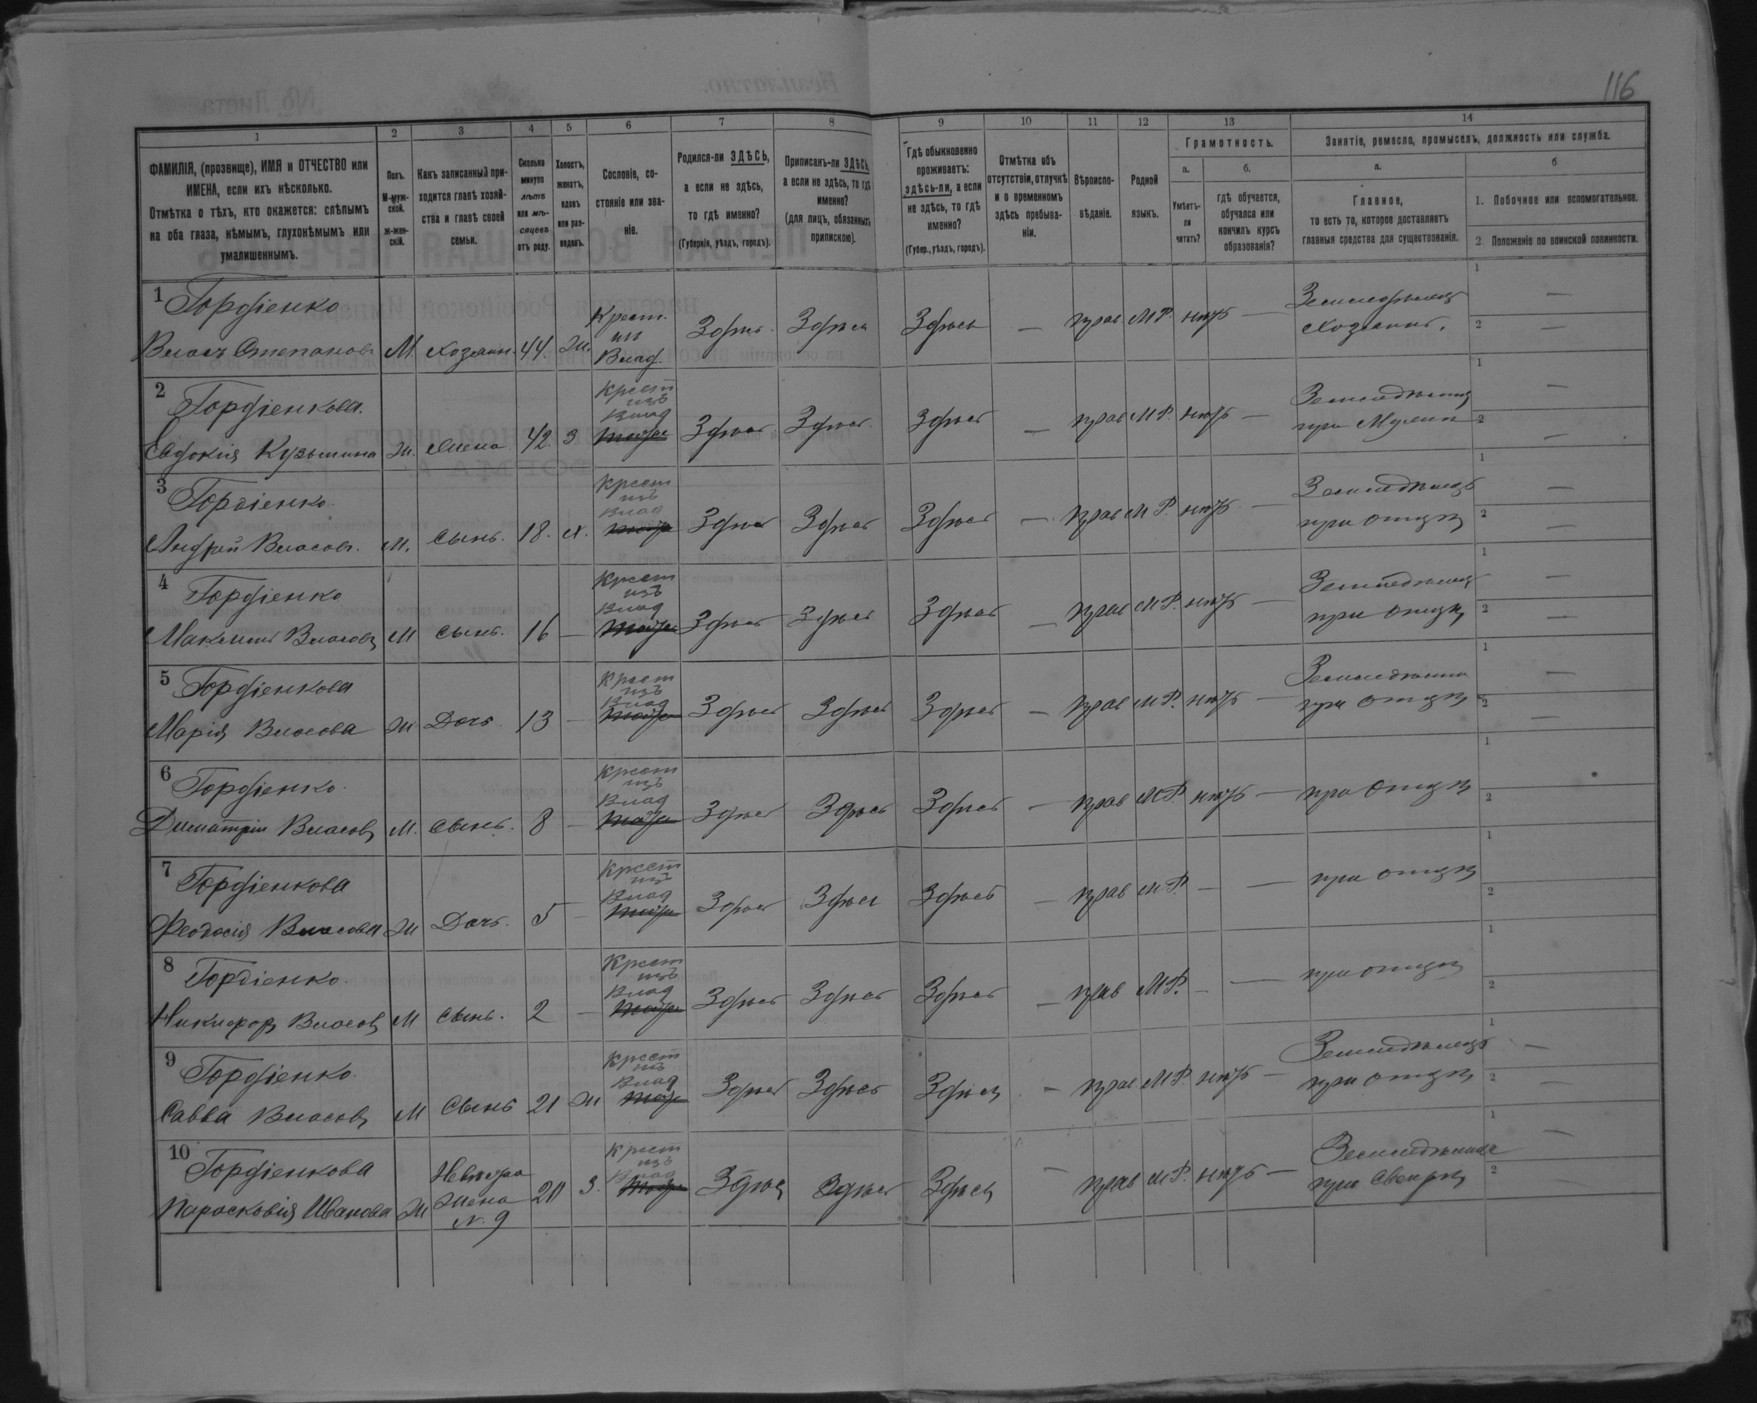 116
1 2 3 4 5 6 7 8 9 10 11 12 13 14
ФАМИЛІЯ, (прозвище), ИМЯ и ОТЧЕСТВО или
ИМЕНА, если ихъ нѣсколько.
Отмѣтка о тѣхъ, кто окажется: слѣпымъ
на оба глаза, нѣмымъ, глухонѣмымъ или
умалишеннымъ.
Полъ.
М-муж-
ской.
Ж-жен-
скій.
Какъ записанный при-
ходится главѣ хозяй-
ства и главѣ своей
семьи.
Сколько
минуло
лѣтъ
или мѣ-
сяцевъ
отъ роду.
Холостъ,
женатъ,
вдовъ
или раз-
веденъ.
Сословіе, со-
стояніе или зва-
ніе.
Родился-ли ЗДѢСЬ,
а если не здѣсь,
то гдѣ именно?
(Губернія, уѣздъ, городъ).
Приписанъ-ли ЗДѢСЬ,
а если не здѣсь, то гдѣ
именно?
(для лицъ, обязанныхъ
припискою).
Гдѣ обыкновенно
проживаетъ:
здѣсь-ли, а если
не здѣсь, то гдѣ
именно?
(Губер., уѣздъ, городъ).
Отмѣтка объ
отсутствіи, отлучкѣ
и о временномъ
здѣсь пребыва-
ніи.
Вѣроиспо-
вѣданіе.
Родной
языкъ.
Грамотность.
а.
Умѣетъ-
ли
читать?
б.
Гдѣ обучается,
обучался или
кончилъ курсъ
образованія?
Занятіе, ремесло, промыселъ, должность или служба.
а.
Главное,
то есть то, которое доставляетъ
главныя средства для существованія.
б
1. Побочное или вспомогательное.
2. Положеніе по воинской повинности.
1 Гордіенко
Власъ Степановъ М Хозяинъ 44. Ж. Крест. изъ Влад. Здѣсь Здѣсь Здѣсь — прав М.Р. нѣтъ — Земледѣлецъ Хозяинъ. 1 — 2 —
2 Гордіенкова.
Евдокія Кузьмина Ж. Жена 42 З Крест изъ Влад Здѣсь Здѣсь Здѣсь — прав М.Р. нѣтъ — при Мужѣ 1 — 2 —
3 Гордіенко.
Андрей Власовъ. М. Сынъ. 18. Х. Крест изъ Влад Здѣсь Здѣсь Здѣсь — прав М.Р. нѣтъ — Земледѣлецъ при отцѣ 1 — 2 —
4 Гордіенко
Максимъ Власовъ М Сынъ. 16 — Крест изъ Влад Здѣсь Здѣсь Здѣсь — прав М.Р. нѣтъ — Земледѣлецъ при отцѣ 1 — 2 —
5 Гордіенкова
Марія Власова Ж Дочь. 13 — Крест изъ Влад Здѣсь Здѣсь Здѣсь — прав М.Р. нѣтъ — при отцѣ 1 — 2 —
6 Гордіенко.
Димитрій Власовъ М. Сынъ. 8 — Крест изъ Влад Здѣсь Здѣсь Здѣсь — прав М.Р. нѣтъ — при отцѣ 1 2
7 Гордіенкова
Феодосія Власова Ж Дочь. 5 — Крест изъ Влад Здѣсь Здѣсь Здѣсь — прав М.Р. — — при отцѣ 1 2
8 Гордіенко.
Никифоръ Власовъ М Сынъ. 2 — Крест изъ Влад Здѣсь Здѣсь Здѣсь — прав М.Р. — — при отцѣ 1 2
9 Гордіенко.
Савва Власовъ М Сынъ 21 Ж Крест изъ Влад Здѣсь Здѣсь Здѣсь — прав М.Р. нѣтъ — Земледѣлецъ при отцѣ 1 — 2 —
10 Гордіенкова
Парасковія Иванова Ж Невѣстка Жена N. 9 20 З. Крест изъ Влад Здѣсь Здѣсь Здѣсь — прав М.Р. нѣтъ — при Свекрѣ 1 — 2 —